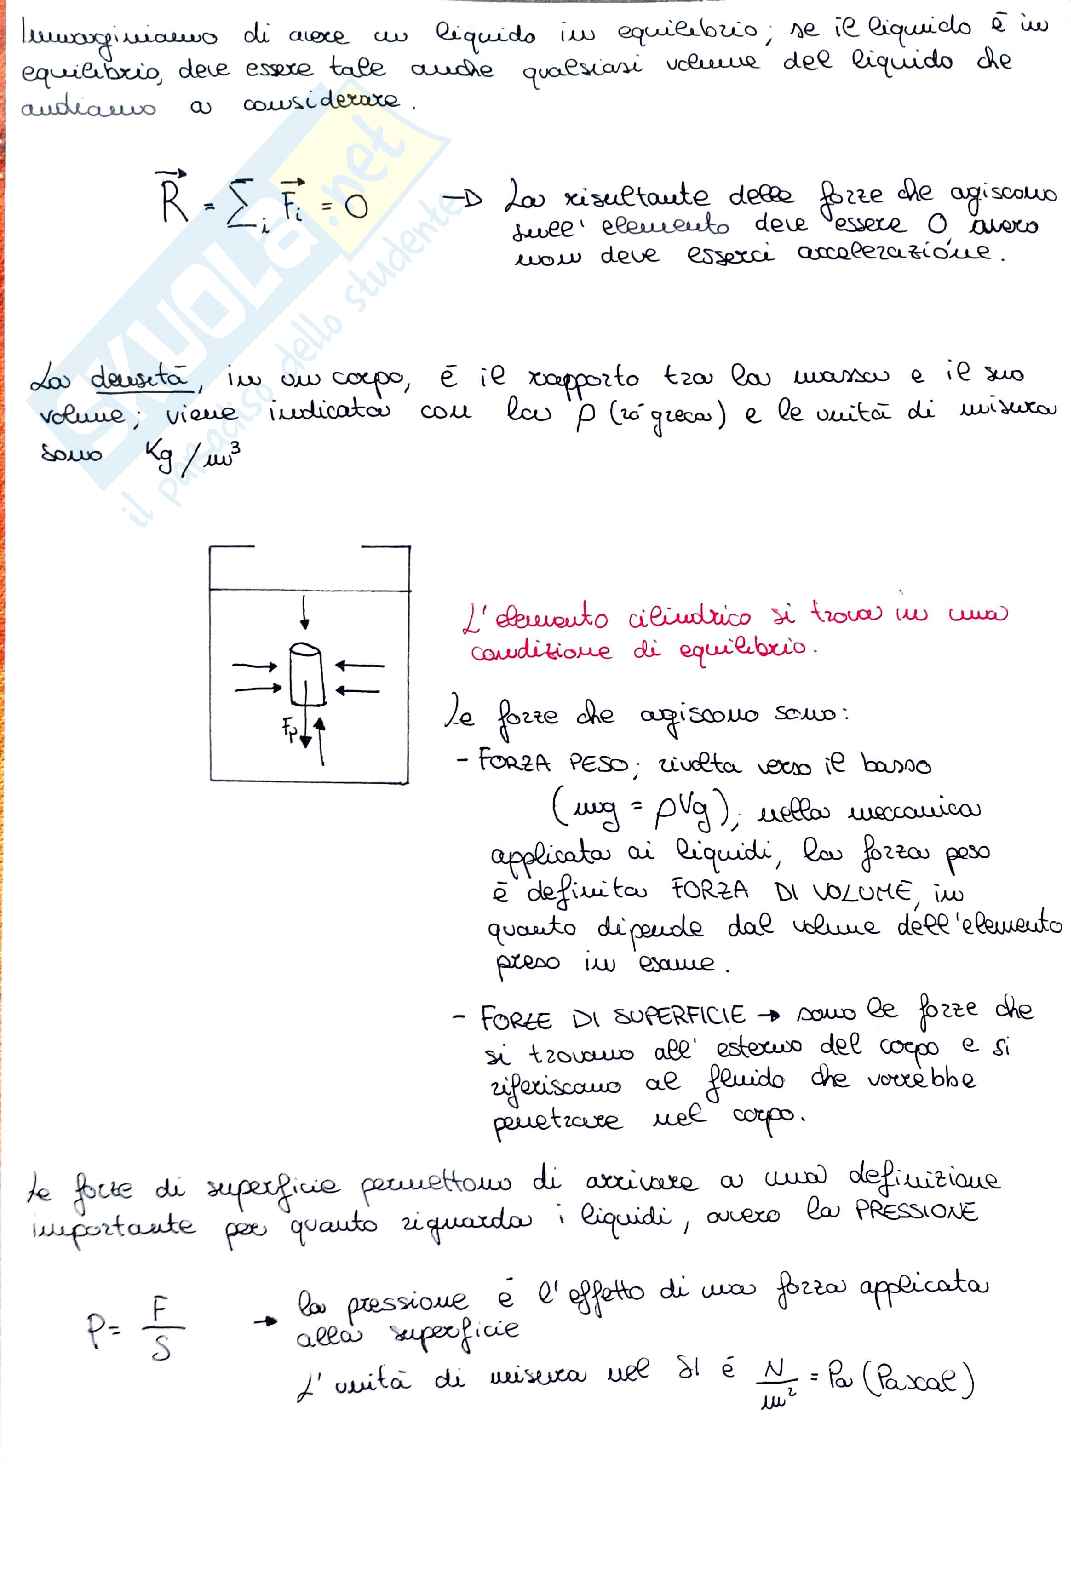 Immaginiamo di avere un liquido in equilibrio; se il liquido è in
equilibrio, deve essere tale anche qualsiasi volume del liquido che
andiamo a considerare.
R = Σi Fi = 0 → La risultante delle forze che agiscono
sull'elemento deve essere 0, ovvero
non deve esserci accelerazione.
La densità, in un corpo, è il rapporto tra la massa e il suo
volume; viene indicata con la ρ (ró greca) e le unità di misura
sono Kg/m³
L'elemento cilindrico si trova in una
condizione di equilibrio.
Fp
Le forze che agiscono sono:
- FORZA PESO; rivolta verso il basso
(mg = ρVg); nella meccanica
applicata ai liquidi, la forza peso
è definita FORZA DI VOLUME, in
quanto dipende dal volume dell'elemento
preso in esame.
- FORZE DI SUPERFICIE → sono le forze che
si trovano all'esterno del corpo e si
riferiscono al fluido che vorrebbe
penetrare nel corpo.
Le forze di superficie permettono di arrivare a una definizione
importante per quanto riguarda i liquidi, ovvero la PRESSIONE
P = F/S → la pressione è l'effetto di una forza applicata
alla superficie
L'unità di misura nel SI è N/m² = Pa (Pascal)
SKUOLA.net
il paradiso dello studente